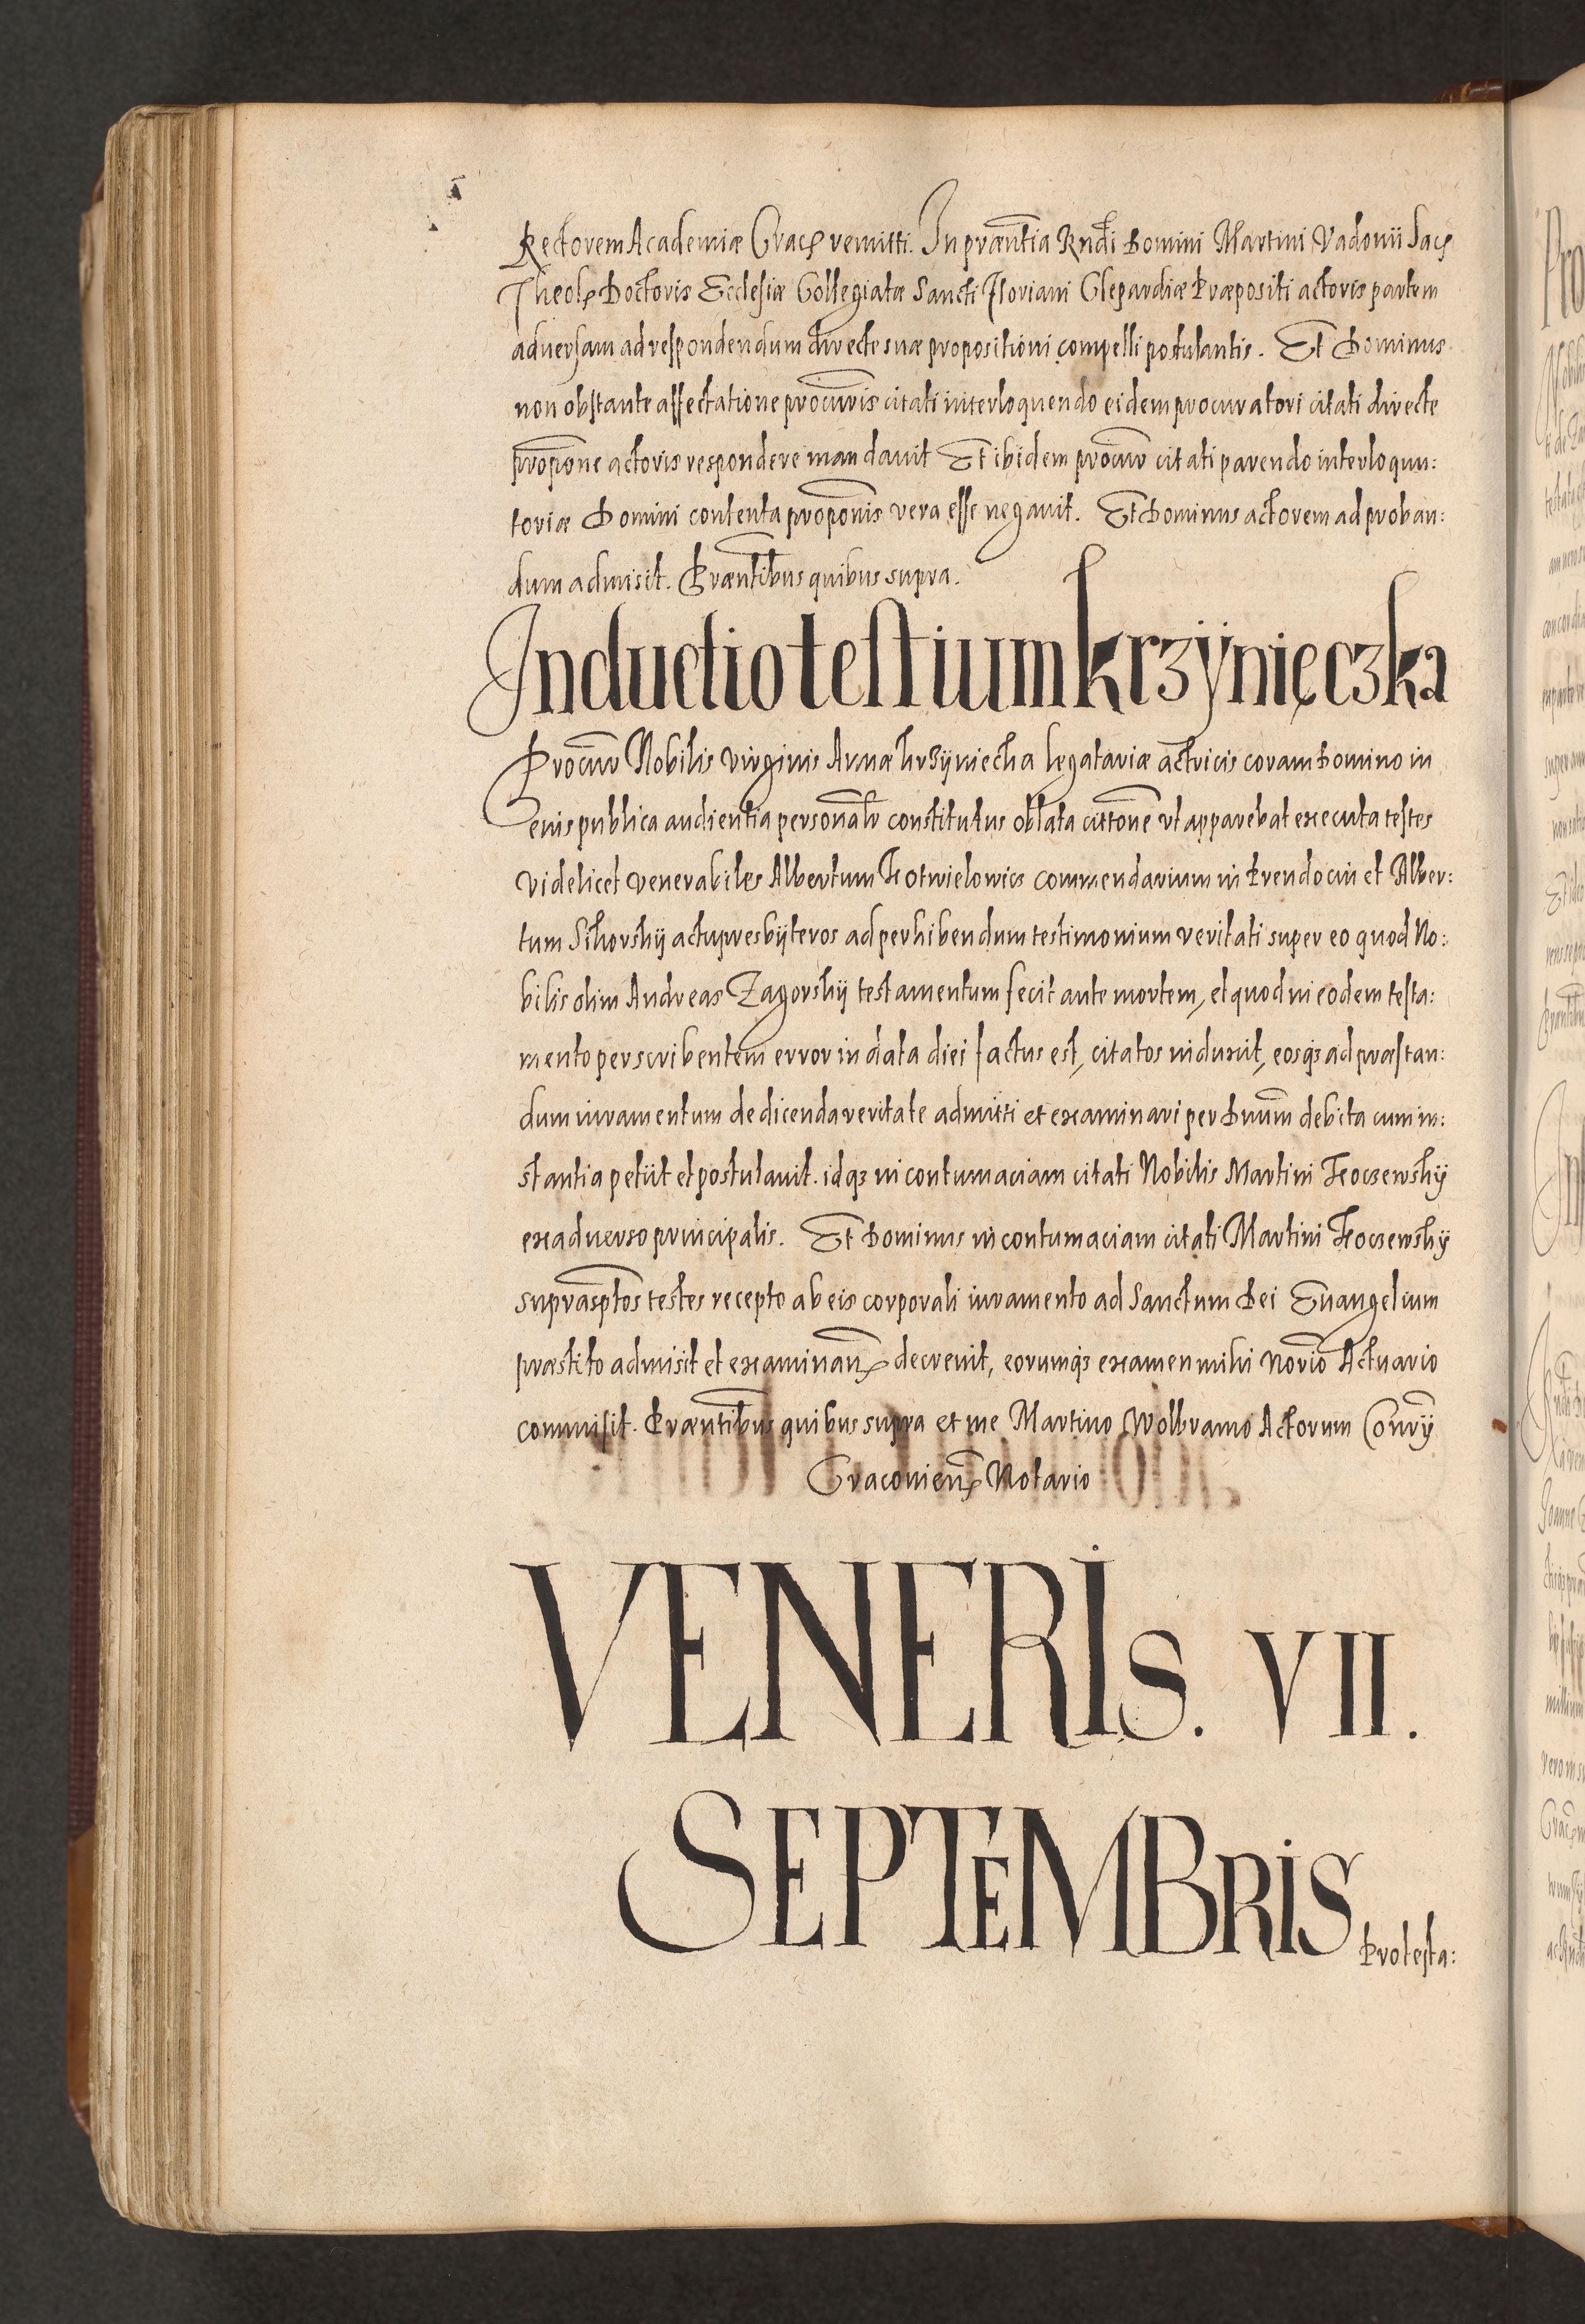 Rectorem Academiæ Crac⁊ remitti. In præntia Rndi Domini Martini Vadovii Sac⁊
Theol⁊ Doctoris Ecclesiæ Collegiatæ Sancti Floriani Clepardiæ Præpositi actoris partem
aduersam ad respondendum directe suæ propositioni compelli postulantis. Et Dominus
non obstante affectatione procuris citati interloquendo eidem procuratori citati directe
propone actoris respondere mandauit Et ibidem procur citati parendo interloqun:
toriæ Domini contenta proponis vera esse negauit. Et Dominus actorem ad proban:
dum admisit. Præntibus quibus supra.
Inductio testium Krzÿnięczka
Procur Nobilis virginis Annæ krzÿniecka legatariæ actricis coram Domino in
eius publica audientia personalr constitutus oblata cittone vt apparebat executa testes
videlicet venerabiles Albertum Kotwielowicz commendarium in Prendocin et Alber:
tum Sikorskÿ actu presbÿteros ad perhibendum testimonium veritati super eo quod No:
bilis olim Andreas Zagorskÿ testamentum fecit ante mortem, et quod in eodem testa:
mento per scribentem error in data diei factus est, citatos induxit, eosq3 ad præstan:
dum iuramentum de dicenda veritate admitti et examinari per Dnum debita cum in:
stantia petiit et postulauit. idq3 in contumaciam citati Nobilis Martini Koczewskÿ
ex aduerso principalis. Et Dominus in contumaciam citati Martini Koczewskÿ
suprasptos testes recepto ab eis corporali iuramento ad Sanctum Dei Euangelium
præstito admisit et examinan⁊ decreuit, eorumq3 examen mihi norio Actuario
commisit. Præntibus quibus supra et me Martino Wolbramo Actorum Conrÿ
Cracouien⁊ Notario
VENERIS. VII.
SEPTEMBRIS.
Protesta: